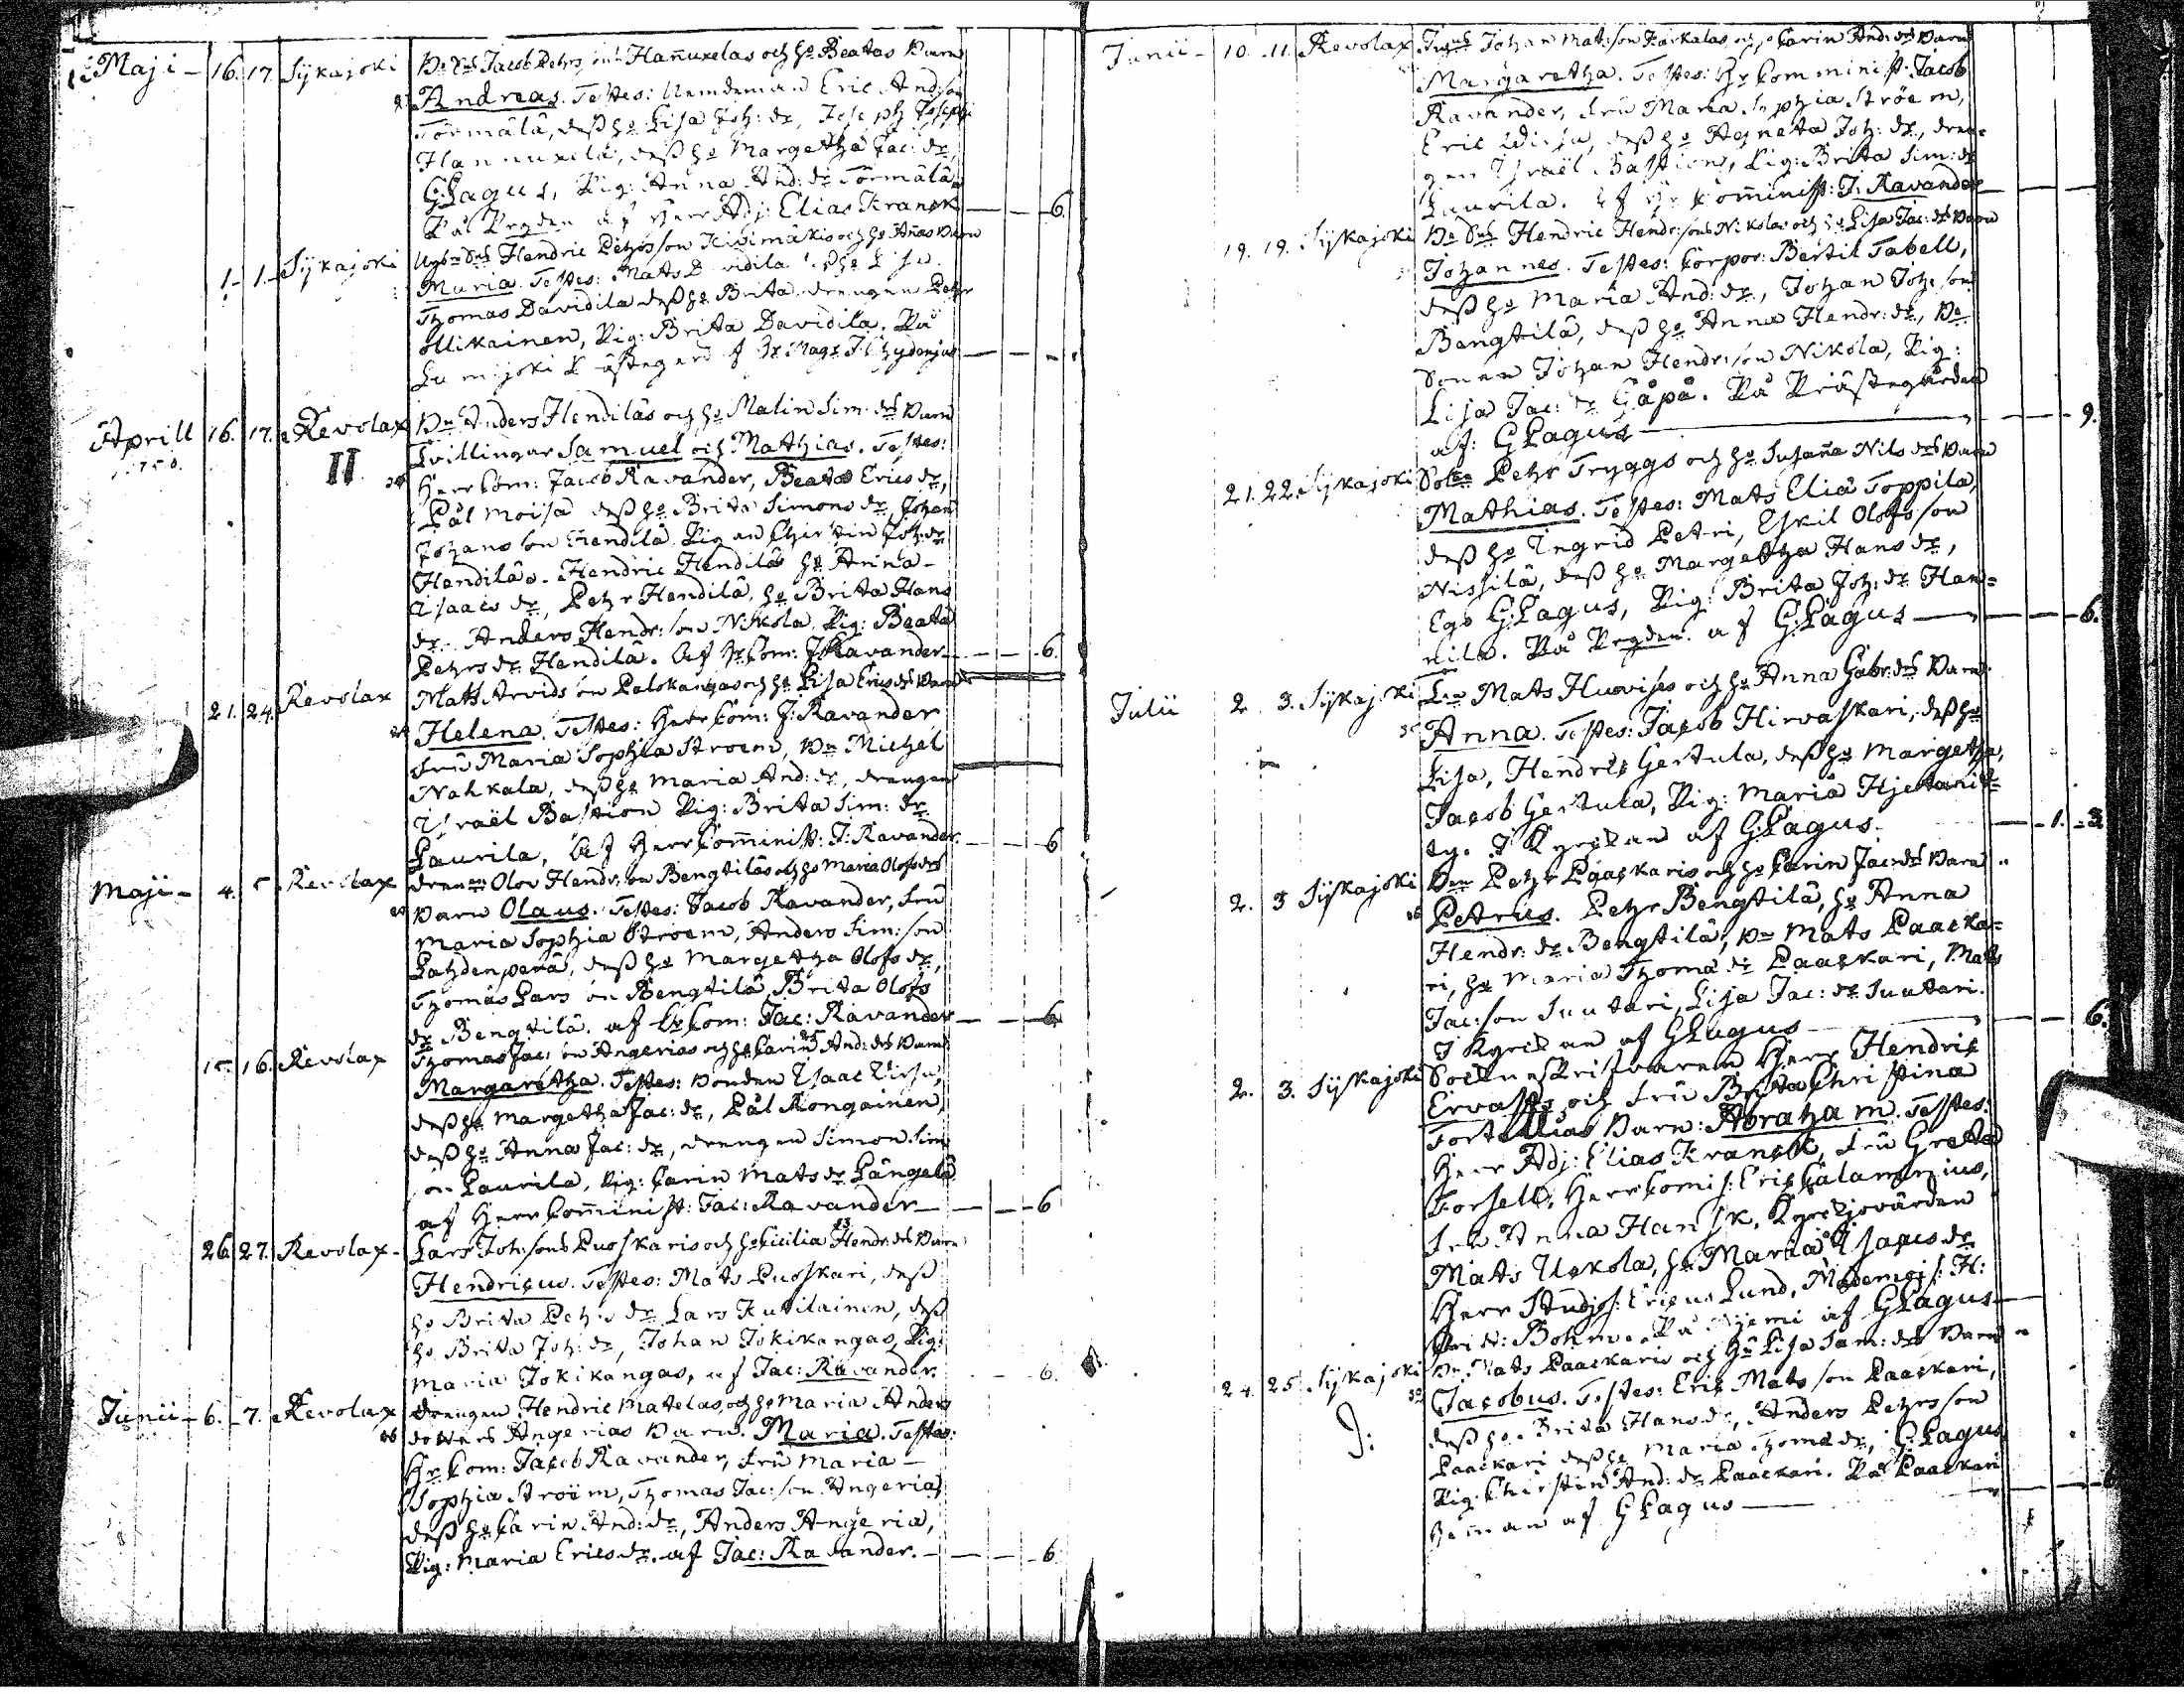 Maji - 16. 17. Sijkajoki Bo. Sns Jacob Pehrs sons Hañukelas och ho Beatas Barn
Andreas. Testes: Nemdeman Eric And:son
Törmälä, dess ho Lisa Joh: dr, Joseph Josephs
Hannukela, dess ho Margetha Jac: dr,
G:Lagus, Pig: Anna And: dr Törmälä
På Bygden af Herr Adj: Elias Kranck 6.
1. 1. Sijkajoki Hendric Pehrsson och ho Añas Barn
Maria. Testes: Mats Davidila ho Lisa.
Thomas Davidila dess ho Brita drengen Pehr
Ollikainen, Pig: Brita Davidila. På
Lumijoki Prästegård af Hr Magr
Aprill 16. 17. Revolax Bn Anders Hendiläs och ho Malin Sim: drs Barn
1750. II Tvillingar Samuel och Mathias. Testes:
Herr Com: Jacob Ravander, Beata Erics dr,
Pål Moisa dess ho Brita Simons dr, Johan
Johans son Hendilä Pigan Chirstin Joh: dr
Hendiläs. Hendric Hendiläs ho Anna
Isaacs dr, Pehr Hendilä, ho Brita Hans
dr. Anders Hendr: son Nikola, Pig: Beata
Pehrs dr Hendilä. Af Hr Com: J:Ravander 6.
21. 24. Revolax Mats Arvids son Palokangas och ho Lisa Erics drs Barn
Helena. Testes: Herr Com: J:Ravander
Fru Maria Sophia Stroem, Bn Michel
Nahkala, dess ho Maria And: dr, drengen
Israël Bastion Pig: Brita Sim: dr
Laurila, Af Herr Com̃inist: J:Ravander. 6
Maji - 4. 5 Revolax drengen Olov Hendr: son Bengtiläs och ho Maria Olofs drs
Barn Olaus. Testes: Jacob Ravander, Fru
Maria Sophia Stroem, Anders Sim: son
Lahdenperä, dess ho Margetha Olofs dr,
Thomas Lars son Bengtilä, Brita Olofs
dr Bengtilä. af Hr Com: Jac: Ravander 6
15. 16. Revolax Thomas Jac: son Angerias och ho Carin And: drs Barn
Margaretha. Testes: Bonden Isaac
dess ho Margetha Jac: dr, Pål Rongainen,
dess ho Anna Jac: dr, drengen Simon Sim:
son Laurila, Pig: Carin Mats dr Längelä
af Herr Com̃inist: Jac: Ravander 6
26. 27. Revolax - Lars Joh: sons Puoskaris och ho Cicilia Hendr: drs Barn
Hendricus. Testes: Mats Puoskari, dess
ho Brita Pehrs dr Lars Kutilainen, dess
ho Brita Joh: dr, Johan Jokikangas, Pig:
Maria Jokikangas, af Jac: Ravander. 6.
Junii - 6. 7. Revolax drengen Hendric Matelas, och ho Maria Anders
dotters Angerias Barn. Maria. Testes:
Hr Com: Jacob Ravander, Fru Maria
Sophia Ström, Thomas Jac: son Angerias
dess ho Carin And: dr, Anders Angeria,
Pig: Maria Erics dr. af Jac: Ravander. 6
Junii - 10. 11. Revolax Johan Mats:son och ho Carin And: drs Barn
Margaretha. Testes: Hr Comminist: Jacob
Ravander, Fru Maria Sophia Ström,
Eric dess ho Agneta Joh: dr, dren=
gen Israël Bastion, Pig: Brita Sim: dr
Laurila. Af Hr Com̃inist: J: Ravander
19. 19. Sijkajoki Bo Sns Hendric Hendr: sons Nikolas och ho Lisa Jac: drs Barn
Johannes. Testes: Corpor: Bertil Tabell,
dess ho Maria And: dr, Johan Joh: son
Bengtilä, dess ho Anna Hendr: dr, Bo
Sonen Johan Hendr: son Nikola, Pig:
Lisa Jac: dr Gåpå. På Prästegården
af: G:Lagus 9.
21. 22. Sijkajoki Soldn Pehr Tryggs och ho Susaña Nils drs Barn
Mathias. Testes: Mats Elia Toppila,
dess ho Ingrid Petri, Eskil Olofs son
Nissilä, dess ho Margetha Hans dr,
Ego G:Lagus, Pig: Brita Joh: dr Han=
nila. På Bygden. af G:Lagus 6.
Julii 2 3. Sijkajoki Mats och ho Anna Gabr: drs Barn.
Anna. Testes: Jacob Hirvaskari, dess ho
Lisa, Hendric Gertula, dess ho Margetha,
Jacob Gertula, Pig: Maria Hjetani=
ty. I Kyrckan af G:Lagus. 1. 3
2. 3 Sijkajoki Bn Pehr Paackaris och ho Carin Jac: drs Barn
Petrus. Pehr Bengtilä, ho Anna
Hendr: dr Bengtilä, Bn Mats Paacka=
ri, ho Maria Thoma dr Paackari, Mats
Jac: son Suutari, Lisa Jac: dr Suutari.
I Kyrckan af G:Lagus 6.
2. 3. Sijkajoki Sockneskrifvaren Herr Hendric
Ervasts och Fru Brita Christina
Fortelias Barn: Abraham. Testes:
Herr Adj: Elias Kranck, Fru Greta
Forsell, Herr Comis: Eric Calamnius,
Fru Anna Hansk, Kyrckjovärden
Mats Uskola, ho Maria Isaacs dr
Herr Studjos: Ericus Lund, Mademois: H:
Brit: Bohm. På Hjemi af G:Lagus
24. 25 Sijkajoki Bn. Mats Paackaris och Hu Lisa Sam: drs Barn
Jacobus. Testes: Eric Mats son Paackari,
dess ho Brita Hans dr, Anders Pehrs son
Paackari dess ho Maria Thoma dr, G:Lagus
Pig. Chirstin And: dr Paackari. På Paackari
Heman af G:Lagus